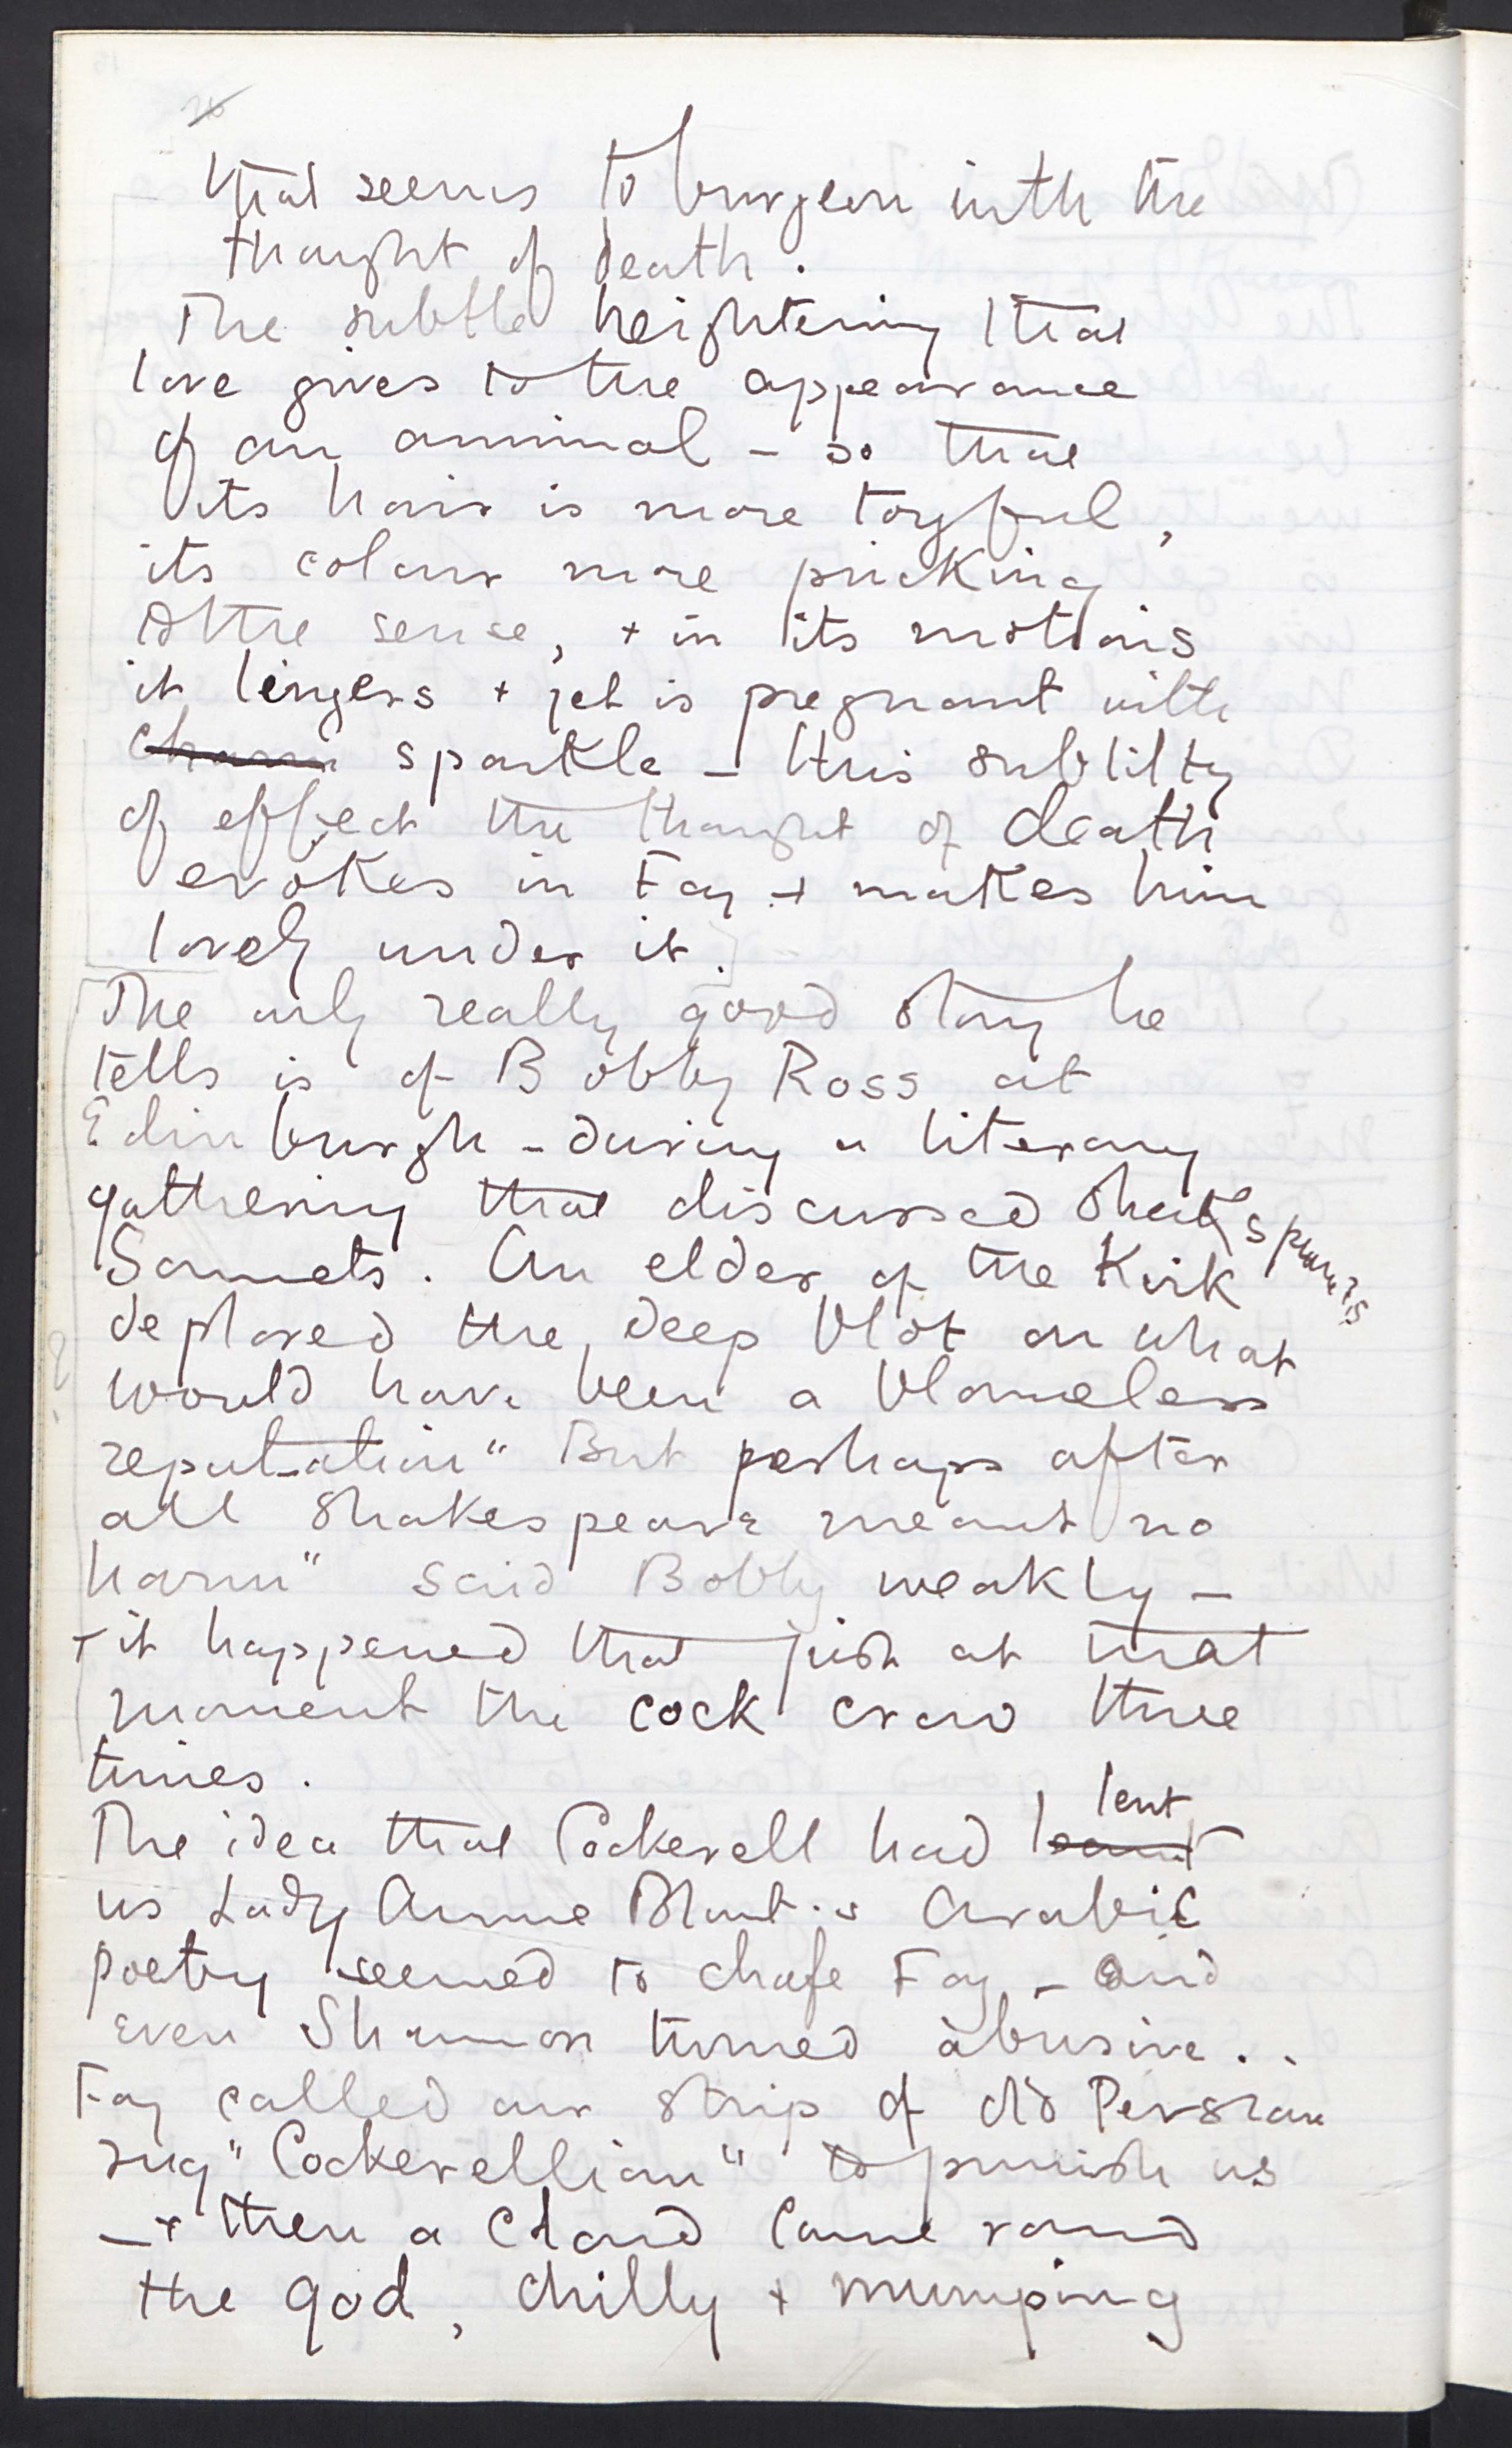 that seems to burgeon with the
thought of death.
The subtle heightening that
love gives to the appearance
of an animal - so that
its hair is more toyful,
its colour more pricking
to the sense, + in its motions
it lingers + yet is pregnant with
charm sparkle - this subtilty
of effect the thought of death
evokes in Fay + makes him
lovely under it.
The only really good story he
tells is of Bobby Ross at
Edinburgh - during a literary
gathering that discussed Shakespeare's
Sonnets. An elder of the Kirk
deplored the deep blot on what
would have been a blameless
reputation" But perhaps after
all Shakespeare meant no
harm" said Bobby weakly -
+ it happened that just at that
moment the cock crew three
times.
The idea that Cockerell had lent
us Lady Anne Blunt's Arabic
poetry seemed to chafe Fay - and
even Shannon turned abusive..
Fay called our strip of old Persian
rug "Cockerellian" to punish us
- + then a cloud came round
the god, chilly + mumping